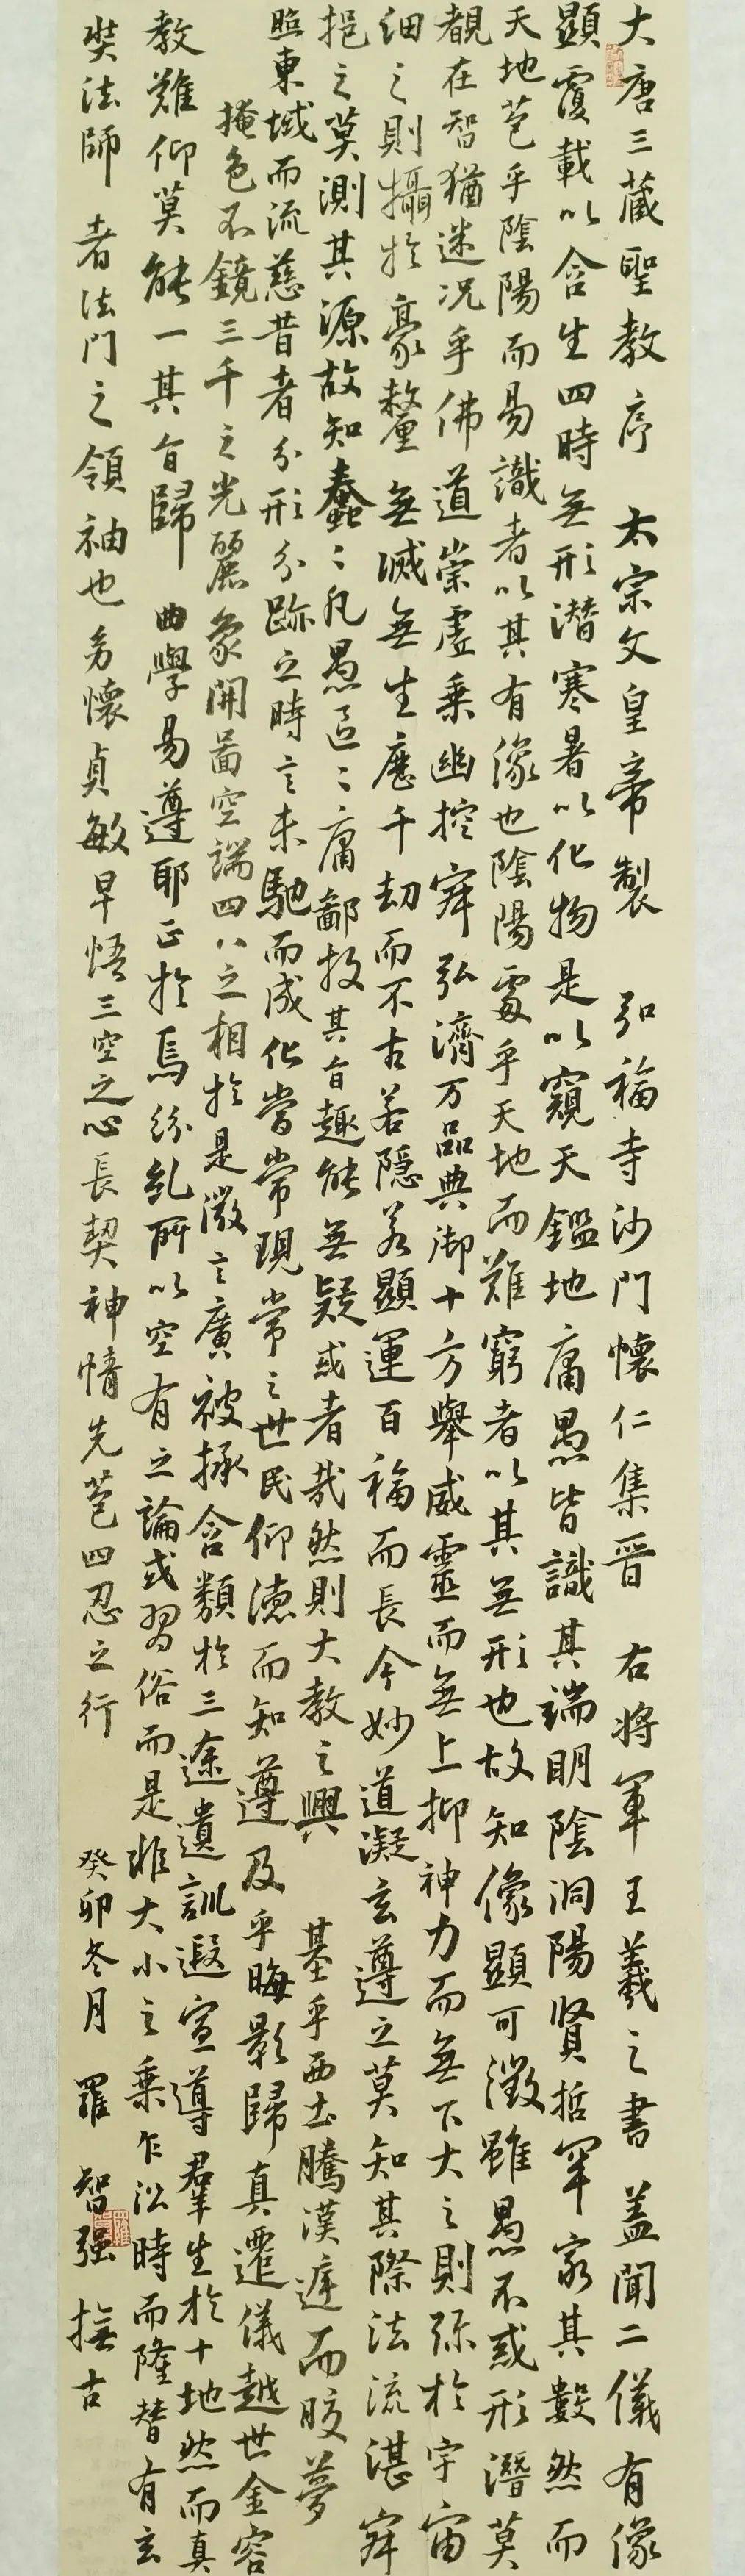 大唐三藏聖教序 太宗文皇帝製 弘福寺沙門懷仁集晉 右將軍王羲之書 蓋聞二儀有像
顯覆載以含生四時無形潛寒暑以化物是以窺天鑑地庸愚皆識其端明陰洞陽賢哲罕窮其數然而
天地苞乎陰陽而易識者以其有像也陰陽處乎天地而難窮者以其無形也故知像顯可徵雖愚不惑形潛莫
覩在智猶迷況乎佛道崇虛乘幽控寂弘濟万品典御十方舉威靈而無上抑神力而無下大之則弥於宇宙
細之則攝於豪釐無滅無生歷千劫而不古若隱若顯運百福而長今妙道凝玄遵之莫知其際法流湛寂
挹之莫測其源故知蠢〻凡愚區〻庸鄙投其旨趣能無疑或者哉然則大教之興 基乎西土騰漢庭而晈夢
照東域而流慈昔者分形分跡之時言未馳而成化當常現常之世民仰德而知遵及乎晦影歸真遷儀越世金容
掩色不鏡三千之光麗象開圖空端四八之相於是微言廣被拯含類於三途遺訓遐宣導羣生於十地然而真
教難仰莫能一其旨歸 曲學易遵耶正於焉紛乱所以空有之論或習俗而是非大小之乘乍沿時而隆替有玄
奘法師 者法門之領袖也幼懷貞敏早悟三空之心長契神情先苞四忍之行 癸卯冬月 羅智强 撫古